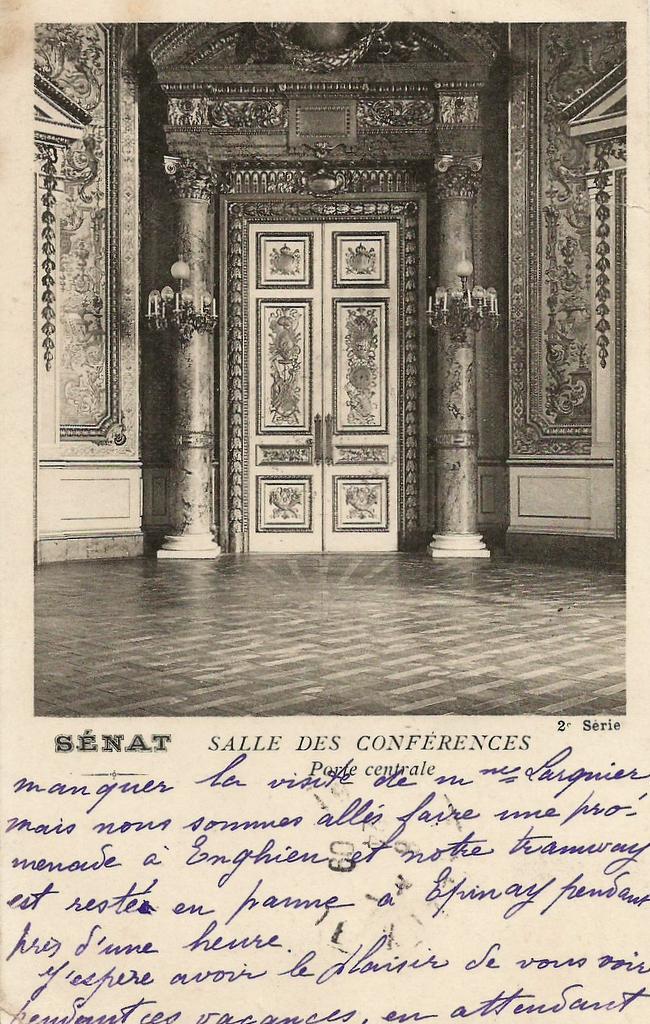 2e Série
SÉNAT SALLE DES CONFÉRENCES
Porte centrale
manquer la visite de mmes Larquier
mais nous sommes allés faire une pro-
menade à Enghien et notre tramway
est resté en panne à Epinay pendant
près d'une heure.
J'espère avoir le plaisir de vous voir
pendant ces vacances, en attendant